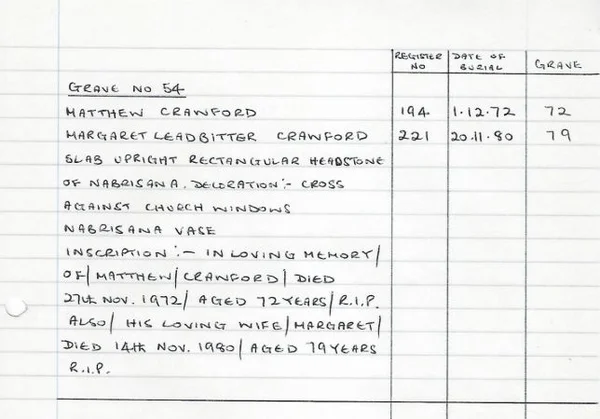 REGISTER NO DATE OF BURIAL GRAVE
GRAVE NO 54
MATTHEW CRAWFORD 194 1.12.72 72
MARGARET LEADBITTER CRAWFORD 221 20.11.80 79
SLAB UPRIGHT RECTANGULAR HEADSTONE
OF NABRISANA. DECORATION:- CROSS
AGAINST CHURCH WINDOWS
NABRISANA VASE
INSCRIPTION:- IN LOVING MEMORY/
OF/MATTHEW/CRAWFORD/DIED
27th NOV. 1972/ AGED 72 YEARS/R.I.P.
ALSO/ HIS LOVING WIFE/MARGARET/
DIED 14th NOV. 1980/ AGED 79 YEARS
R.I.P.